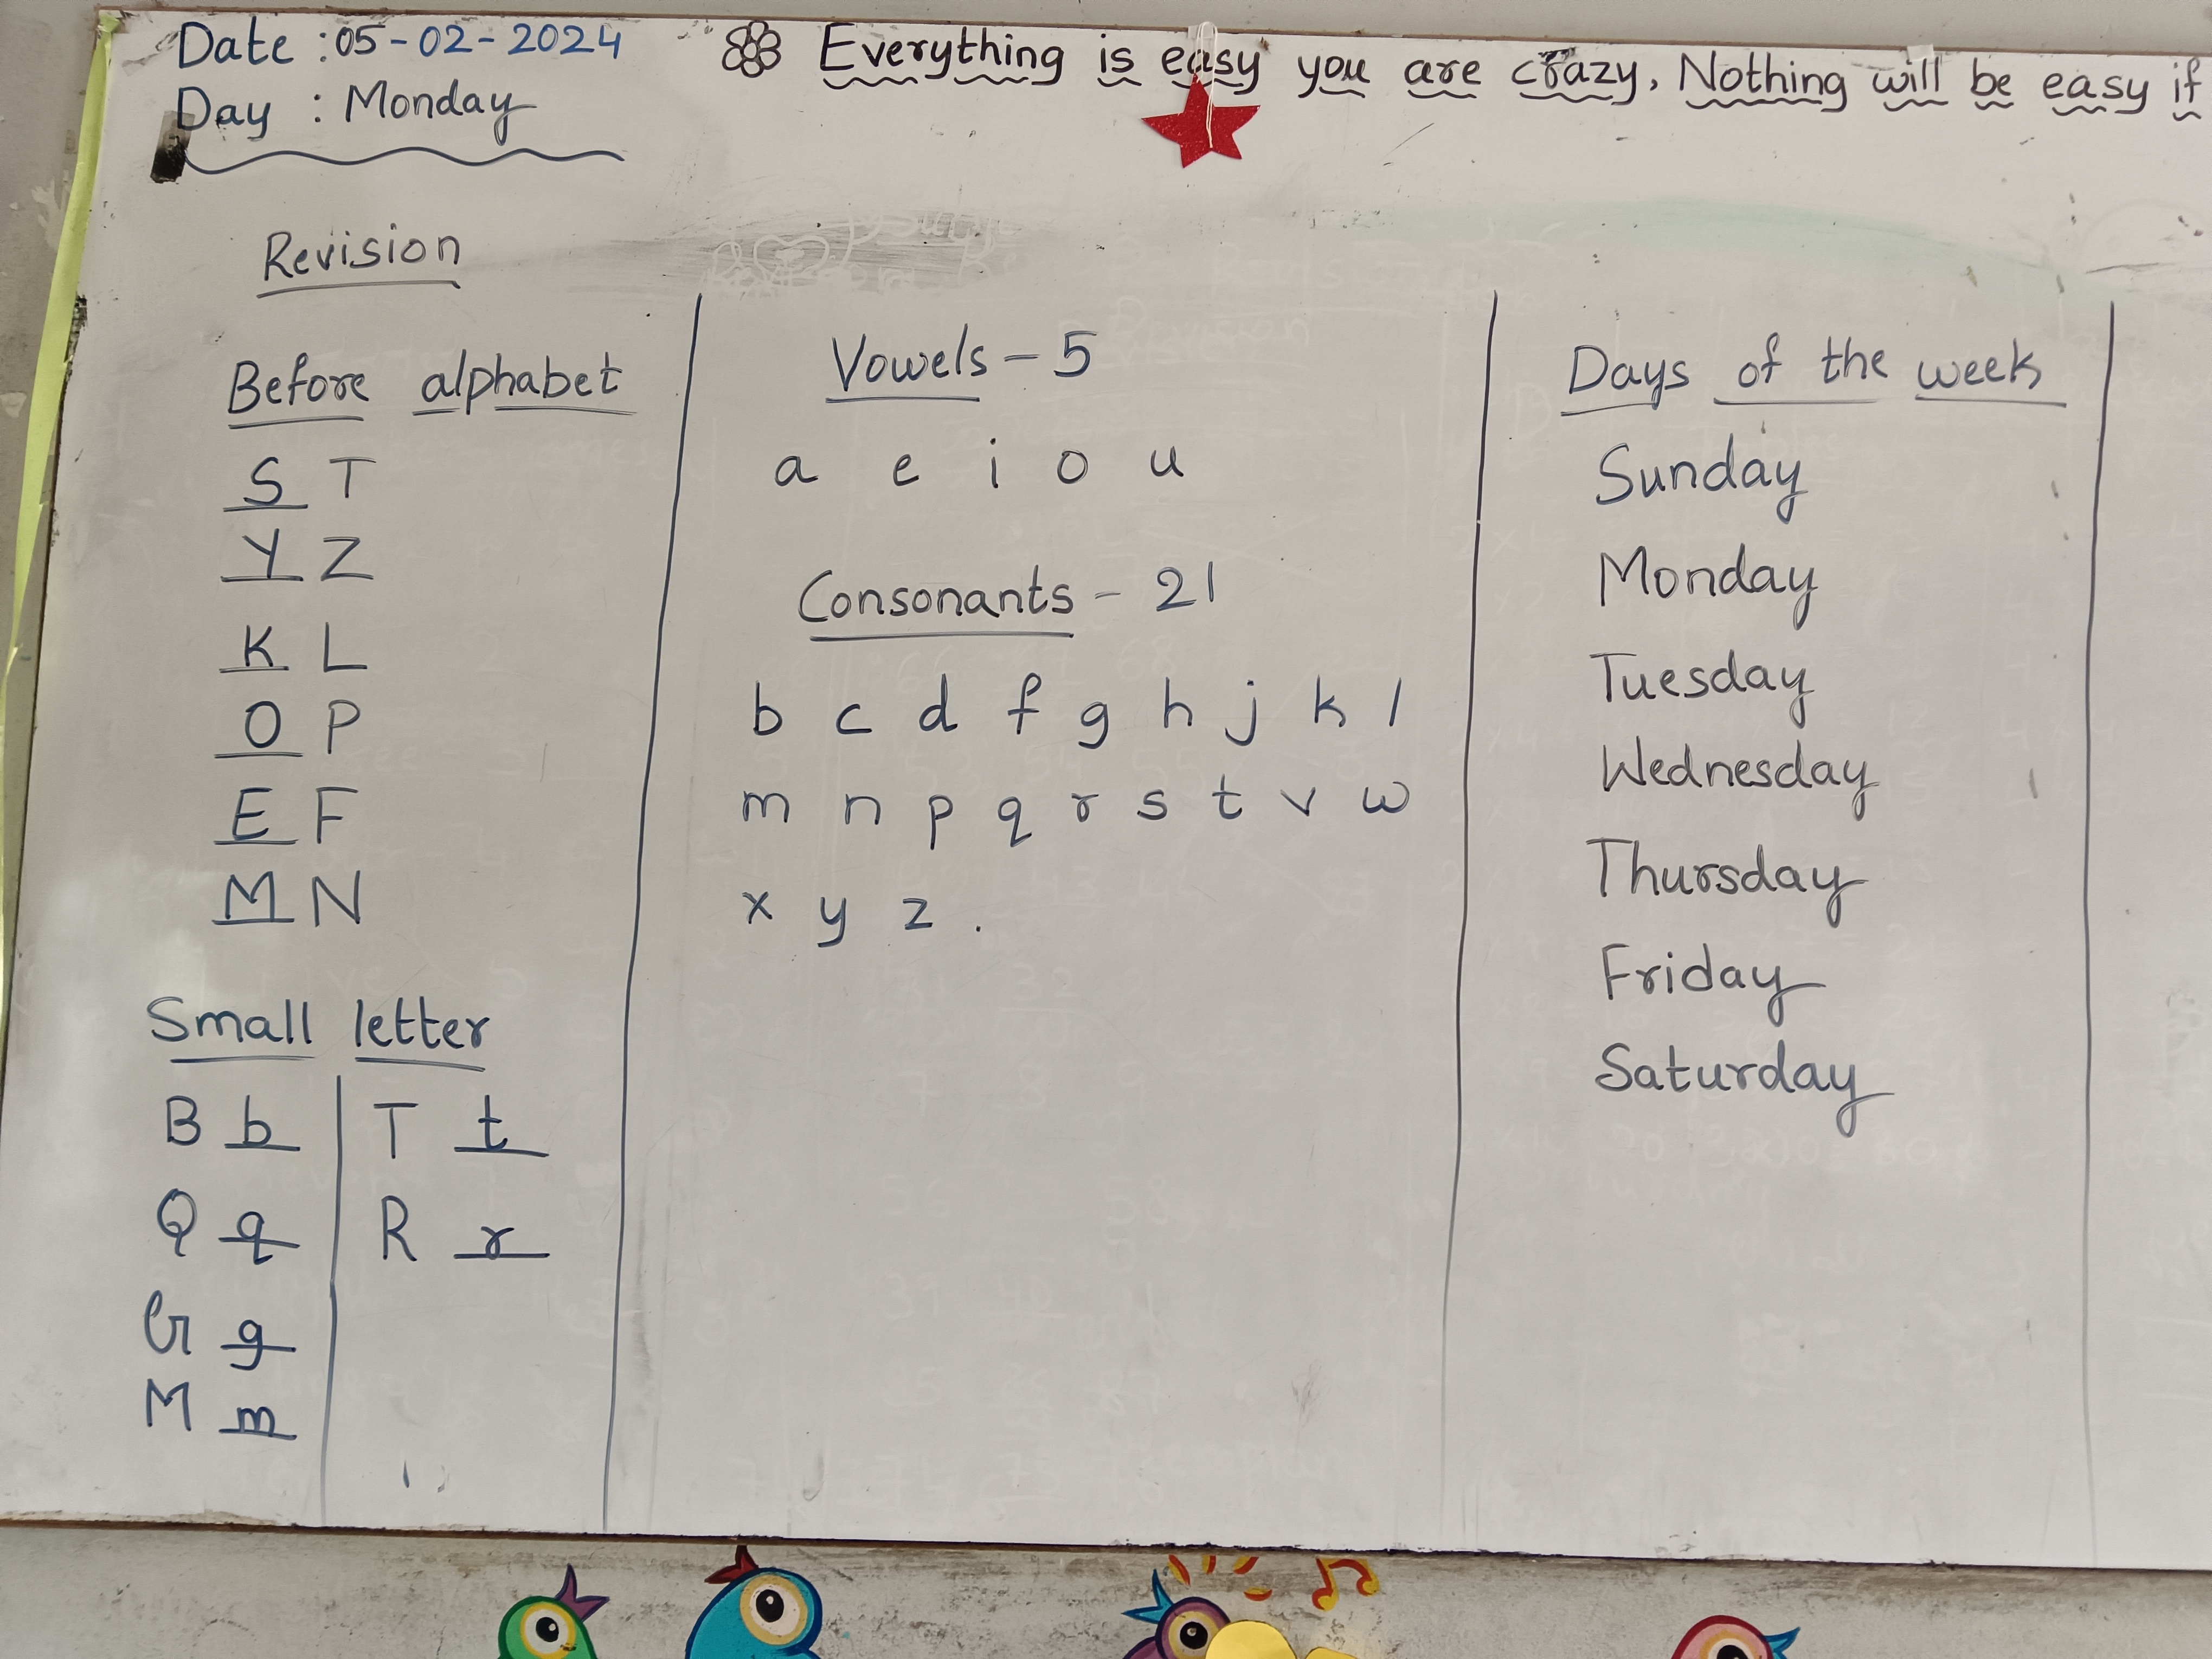 Date : 05-02-2024
Day : Monday
Everything is easy you are crazy, Nothing will be easy if
Revision
Before alphabet
S T
Y Z
K L
O P
E F
M N
Small letter
B b T t
Q q R r
G g
M m
Vowels - 5
a e i o u
Consonants - 21
b c d f g h j k l
m n p q r s t v w
x y z .
Days of the week
Sunday
Monday
Tuesday
Wednesday
Thursday
Friday
Saturday